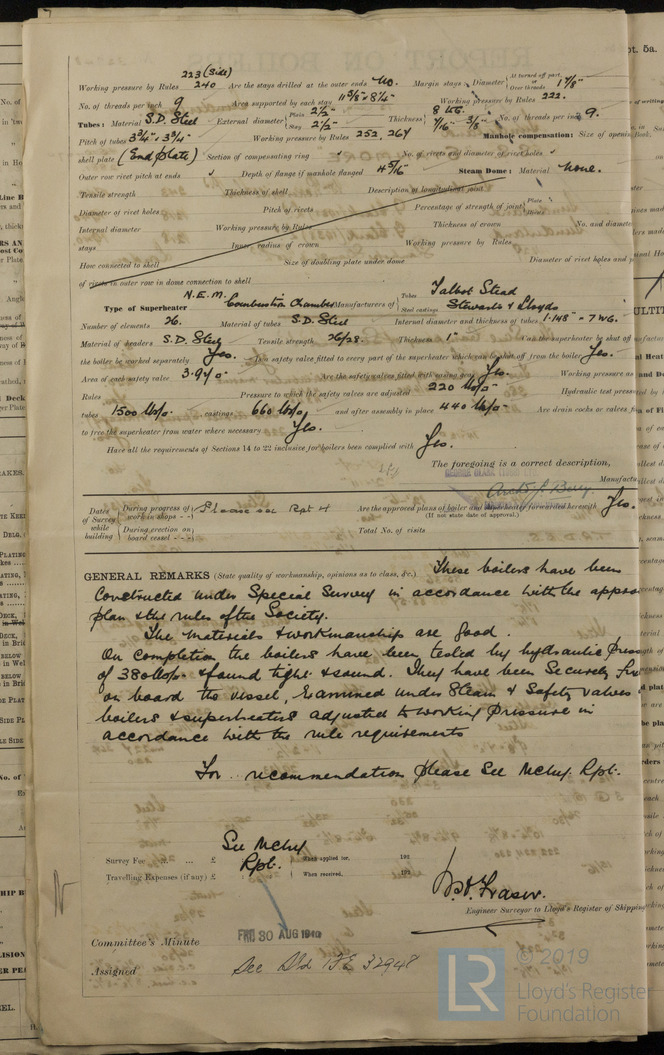 223 (side)
Working pressure by Rules 240 Are the stays drilled at the outer ends No. Margin stays: Diameter { At turned off part, or Over threads 1 7/8"
No. of threads per inch 9 Area supported by each stay 11 5/8" × 8 1/4" Working pressure by Rules 222.
Tubes: Material S.D. Steel External diameter { Plain 2 1/2" Stay 2 1/2" Thickness { 8 WG. 7/16" 3/8" No. of threads per inch 9.
Pitch of tubes 3 3/4" × 3 3/4" Working pressure by Rules 252, 264 Manhole compensation: Size of opening
shell plate (End plate) Section of compensating ring No. of rivets and diameter of rivet holes
Outer row rivet pitch at ends Depth of flange if manhole flanged 4 5/16" Steam Dome: Material None.
Tensile strength Thickness of shell Description of longitudinal joint
Diameter of rivet holes Pitch of rivets Percentage of strength of joint { Plate Rivets
Internal diameter Working pressure by Rules Thickness of crown No. and diameter
stays Inner radius of crown Working pressure by Rules
How connected to shell Size of doubling plate under dome Diameter of rivet holes and
of rivets in outer row in dome connection to shell
Type of Superheater N.E.M. Combustion Chamber Manufacturers of { Tubes Talbot Stead Steel castings Stewarts & Lloyds
Number of elements 26. Material of tubes S.D. Steel Internal diameter and thickness of tubes 1.148" × 7 WG.
Material of headers S.D. Steel Tensile strength 26/28. Thickness 1" Can the superheater be shut off
the boiler be worked separately Yes. Is a safety valve fitted to every part of the superheater which can be shut off from the boiler Yes.
Area of each safety valve 3.940" Are the safety valves fitted with easing gear Yes.
Rules Pressure to which the safety valves are adjusted 220 lbs/□" Hydraulic test pressure
tubes 1500 lbs/□" castings 660 lbs/□" and after assembly in place 440 lbs/□" Are drain cocks or valves
to free the superheater from water where necessary Yes.
Have all the requirements of Sections 14 to 22 inclusive for boilers been complied with Yes.
The foregoing is a correct description,
Manufacturer
Dates of Survey while building { During progress of work in shops - - Please see Rpt 4 Are the approved plans of boiler and superheater forwarded herewith Yes.
(If not state date of approval.)
During erection on board vessel - - - Total No. of visits
GENERAL REMARKS (State quality of workmanship, opinions as to class, &c.) These boilers have been
constructed under Special Survey in accordance with the
plan & the rules of the Society.
The materials & workmanship are good.
On completion the boilers have been tested by hydraulic
of 380 lbs/□" & found tight & sound. They have been securely
on board the vessel, examined under steam & safety valves
boilers & superheaters adjusted to working pressure in
accordance with the rule requirements
For recommendation please see Mchy. Rpt.
Survey Fee ... ... £ See Mchy Rpt. { When applied for, 192
Travelling Expenses (if any) £ { When received, 192
Fraser.
Engineer Surveyor to Lloyd's Register of Shipping
Committee's Minute FRI 30 AUG 1940
Assigned See Sld FE 32948
© 2019
LR Lloyd's Register
Foundation